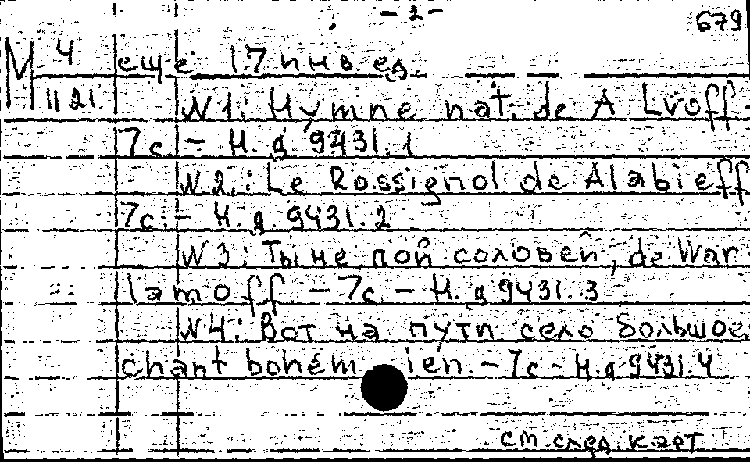 - 2 -
679
М 4 еще 17 инв ед.
11 21 N1: Hymne nat. de A Lvoff
7с. - Н. д 9431.1
N2.: Le Rossignol de Alabieff
7с. - Н. д. 9431.2
N3: Ты не пой соловей, de War
lamoff - 7с - Н. д 9431.3
N4: Вот на пути село большое,
chant bohém ien. - 7с - Н. д 9431.4
см. след. карт